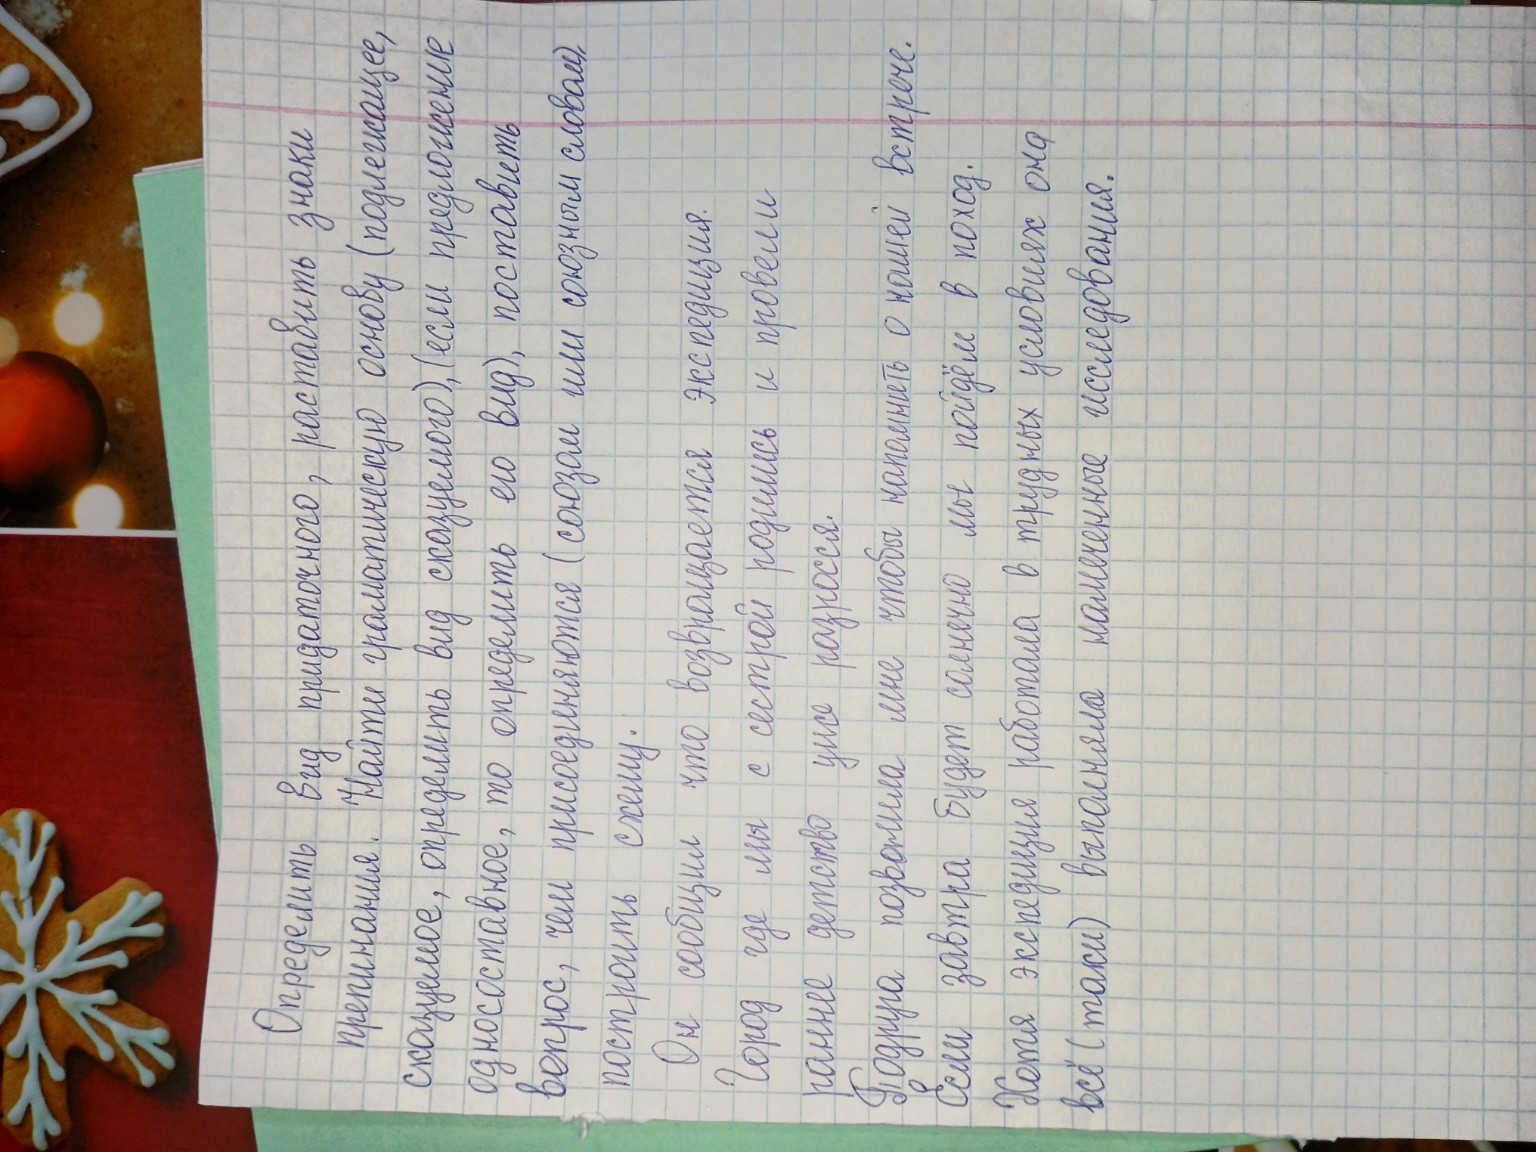 Определить вид придаточного, расставить знаки
препинания. Найти граматическую основу (подлежащее,
сказуемое, определить вид сказуемого), (если предложение
односоставное, то определить его вид), поставить
вопрос, чем присоединяются (союзом или союзным словом),
построить схему.
Он сообщил что возвращается экспедиция.
Город где мы с сестрой родились и провели
раннее детство уже разросся.
Подруга позвонила мне чтобы напомнить о нашей встрече.
Если завтра будет солнечно мы пойдём в поход.
Хотя экспедиция работала в трудных условиях она
всё (таки) выполняла намеченные исследования.